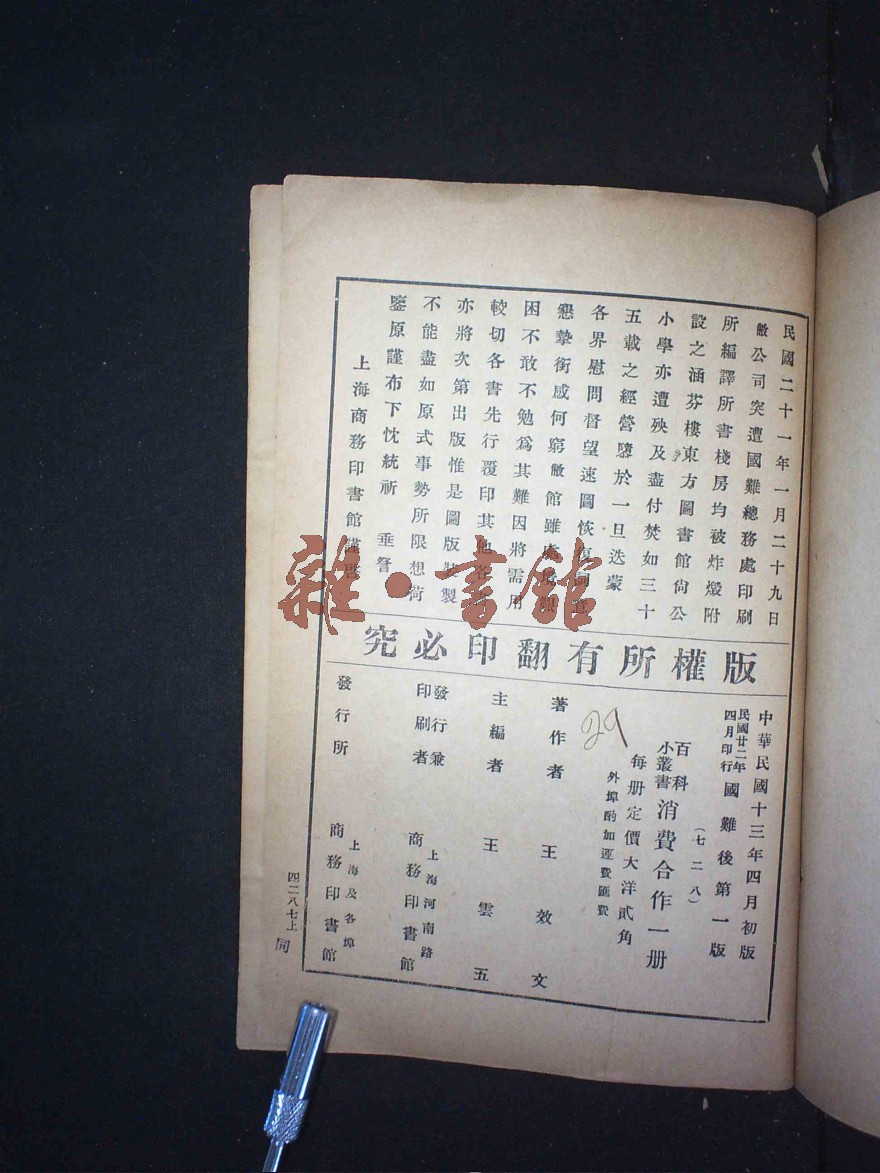 民國二十一年一月二十九日
敝公司突遭國難總務處印刷
所編譯所書棧房均被炸燬附
設之涵芬樓東方圖書館尙公
小學亦遭殃及盡付焚如三十
五載之經營隳於一旦迭蒙
各界慰問督望速圖恢復詞意
懇摯銜感何窮敝館雖處
困不敢不勉爲其難因將需用
較切各書先行覆印其他各書
亦將次第出版惟是圖版裝製
不能盡如原式事勢所限想荷
鑒原謹布下忱統祈 垂詧
上海商務印書館謹啓
版權所有翻印必究
中華民國十三年四月初版
民國廿二年四月印行 國難後第一版
(七二八)
百科小叢書 消費合作一册
每册定價大洋貳角
外埠酌加運費匯費
29
著作者 王效文
主編者 王雲五
發行兼印刷者 上海河南路 商務印書館
發行所 上海及各埠 商務印書館
四二八七上
同
雜·書館